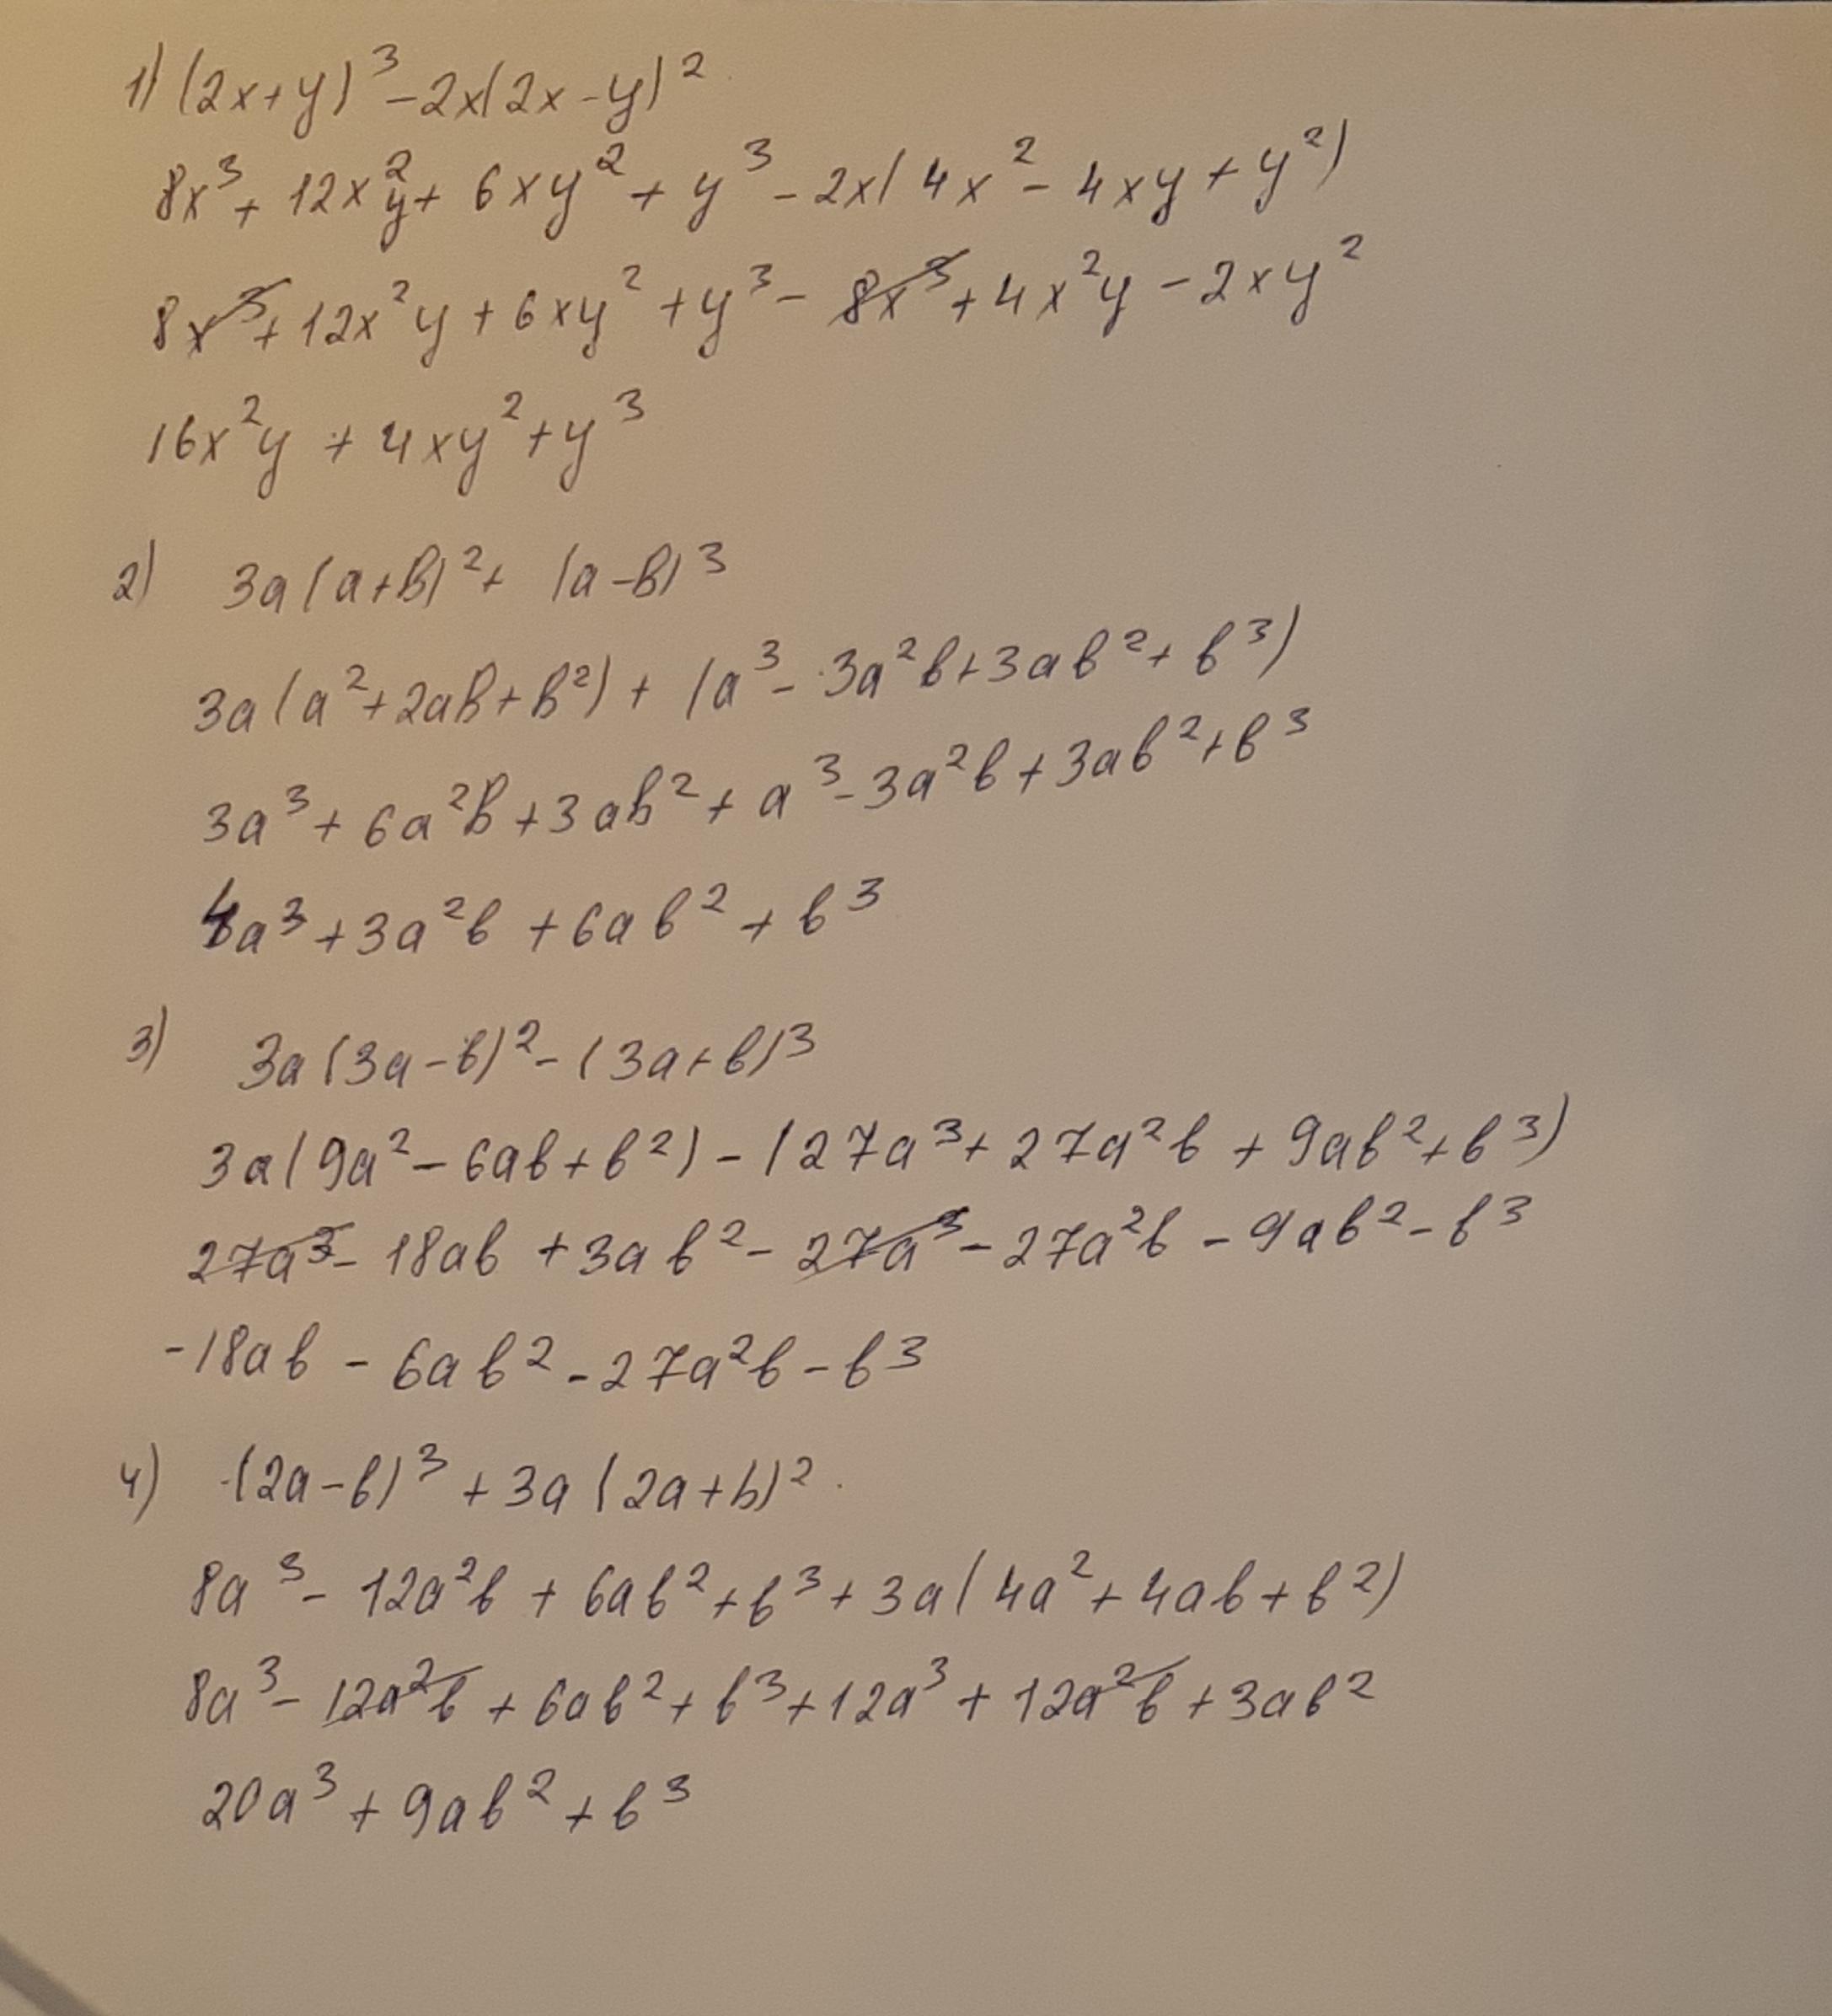 1) (2x+y)³-2x(2x-y)²
8x³+12x²y+6xy²+y³-2x(4x²-4xy+y²)
8x³+12x²y+6xy²+y³-8x³+4x²y-2xy²
16x²y+4xy²+y³
2) 3a(a+b)²+(a-b)³
3a(a²+2ab+b²)+(a³-3a²b+3ab²+b³)
3a³+6a²b+3ab²+a³-3a²b+3ab²+b³
4a³+3a²b+6ab²+b³
3) 3a(3a-b)²-(3a+b)³
3a(9a²-6ab+b²)-(27a³+27a²b+9ab²+b³)
27a³-18ab+3ab²-27a³-27a²b-9ab²-b³
-18ab-6ab²-27a²b-b³
4) (2a-b)³+3a(2a+b)²
8a³-12a²b+6ab²+b³+3a(4a²+4ab+b²)
8a³-12a²b+6ab²+b³+12a³+12a²b+3ab²
20a³+9ab²+b³